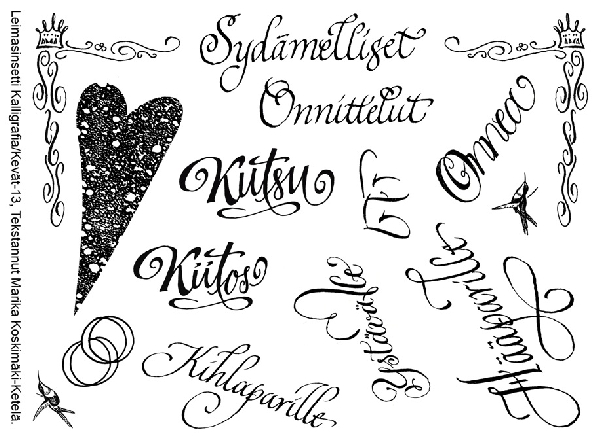 Leimasinsetti Kalligrafia/Kevät-13, Tekstannut Marika Koskimäki-Ketelä.
Sydämelliset
Onnittelut
Onnea
Kiitsu
Kiitos
Ystävälle
Hääparille
Kihlaparille